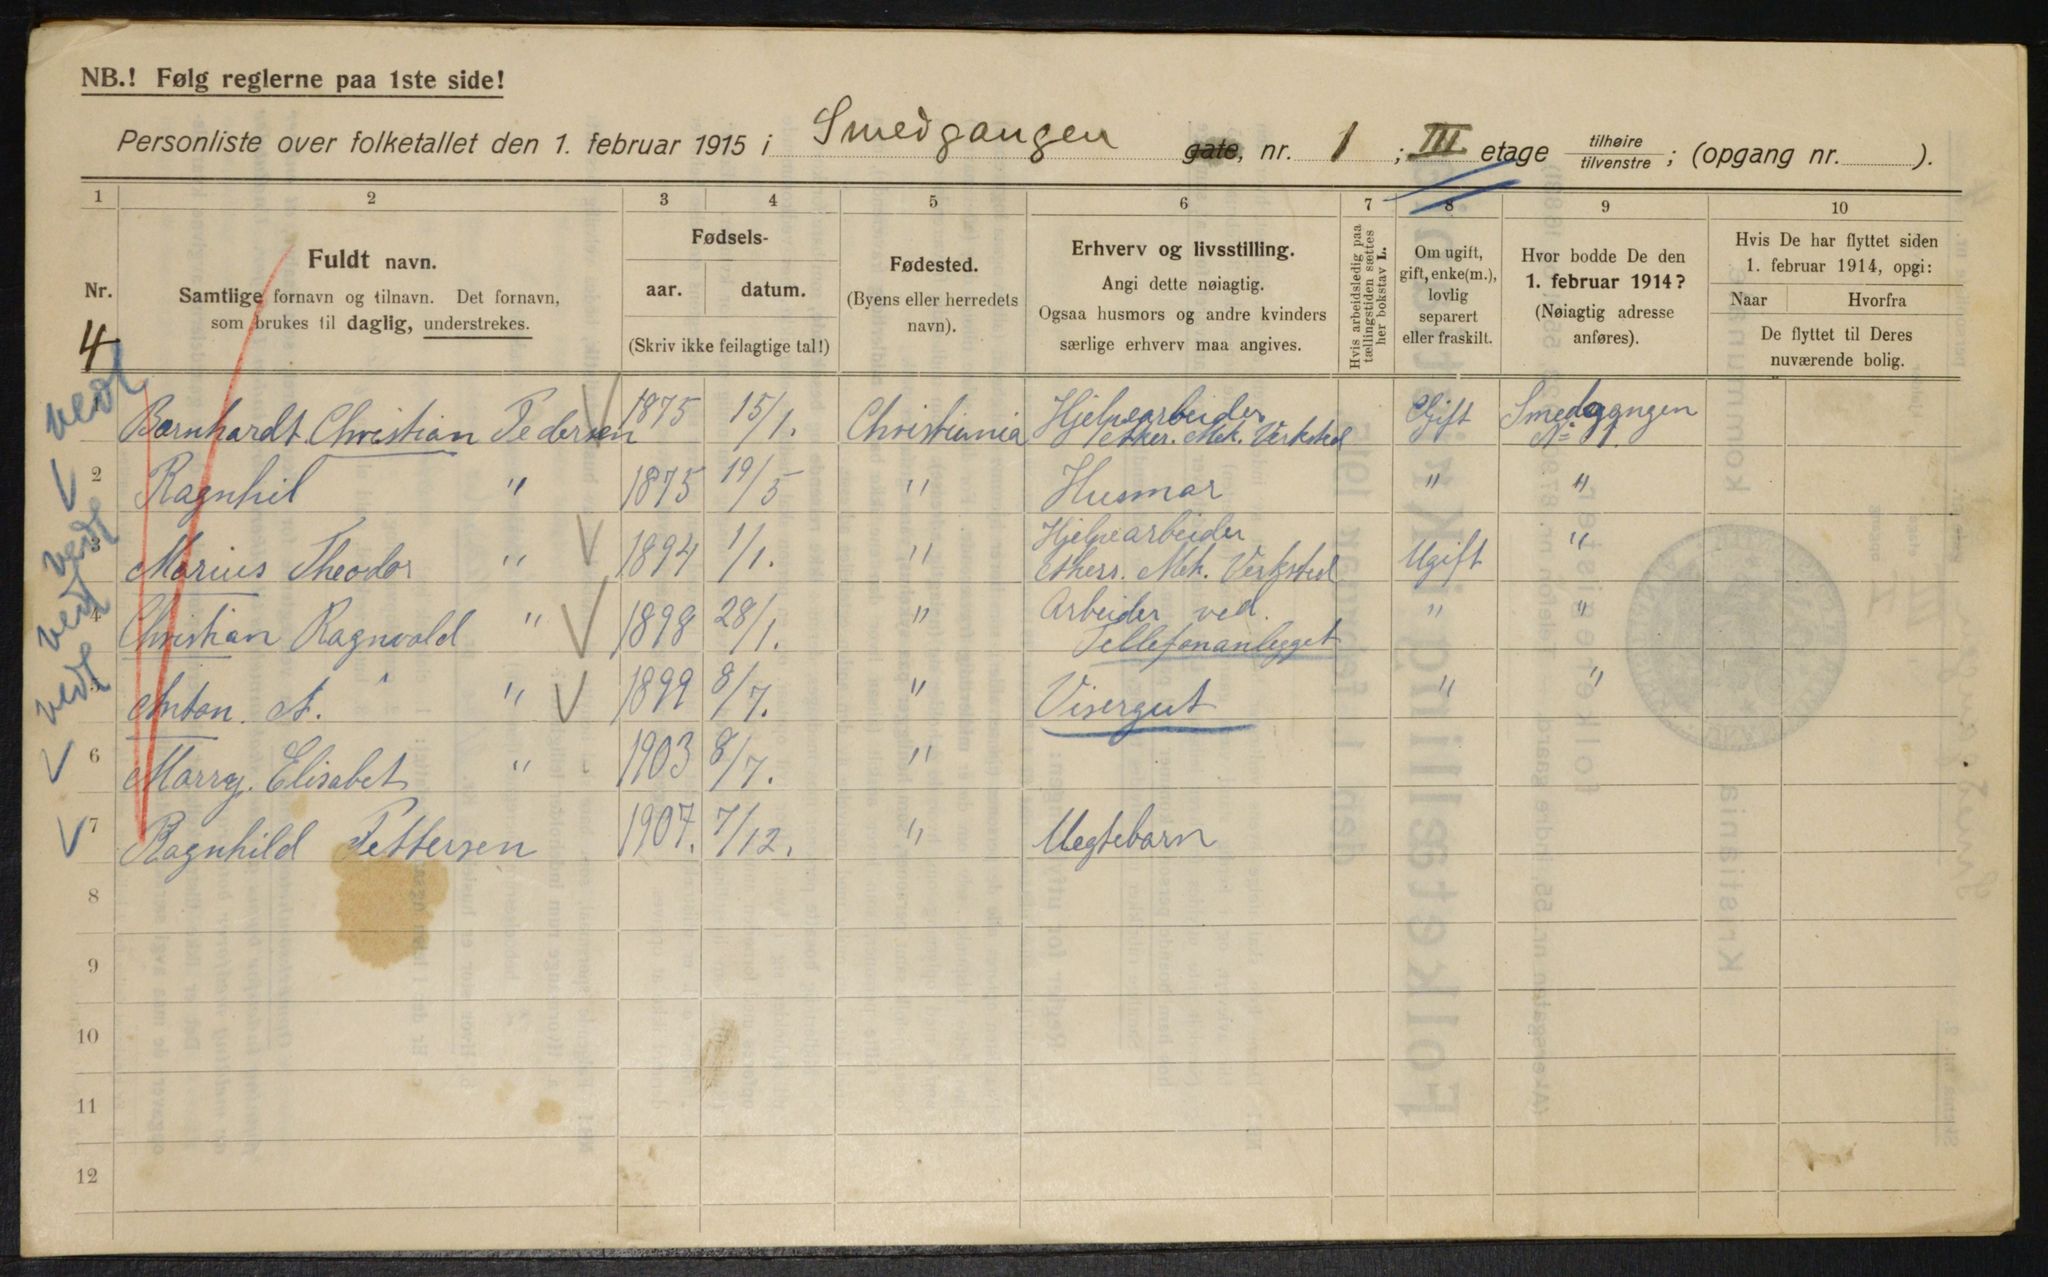 NB.! Følg reglerne paa 1ste side!
Personliste over folketallet den 1. februar 1915 i Smedgangen gate, nr. 1 ; III etage tilhøire tilvenstre ; (opgang nr. ).
1 2 3 4 5 6 7 8 9 10
Nr.
4
Fuldt navn.
Samtlige fornavn og tilnavn. Det fornavn,
som brukes til daglig, understrekes.
Fødsels-
aar. datum.
(Skriv ikke feilagtige tal!)
Fødested.
(Byens eller herredets
navn).
Erhverv og livsstilling.
Angi dette nøiagtig.
Ogsaa husmors og andre kvinders
særlige erhverv maa angives.
Hvis arbeidsledig paa
tællingstiden sættes
her bokstav L.
Om ugift,
gift, enke(m.),
lovlig
separert
eller fraskilt.
Hvor bodde De den
1. februar 1914?
(Nøiagtig adresse
anføres).
Hvis De har flyttet siden
1. februar 1914, opgi:
Naar Hvorfra
De flyttet til Deres
nuværende bolig.
Bernhardt Christian Pedersen 1875 15/1. Christiania Hjelpearbeider Gift Smedgangen
Akers. Mek. Verksted No 1.
2 Ragnhil " 1875 19/5 " Husmor " "
3 Marius Theodor " 1894 1/1. " Hjelpearbeider Ugift "
Akers. Mek. Verksted
4 Christian Ragnvald " 1898 28/1. " Arbeider ved. " "
Tellefonanlegget
5 Anton. A. " 1899 8/7. " Visergut " "
6 Marry. Elisabet " 1903 8/7. "
7 Ragnhild Pettersen 1907. 7/12. " Megtebarn
8
9
10
11
12